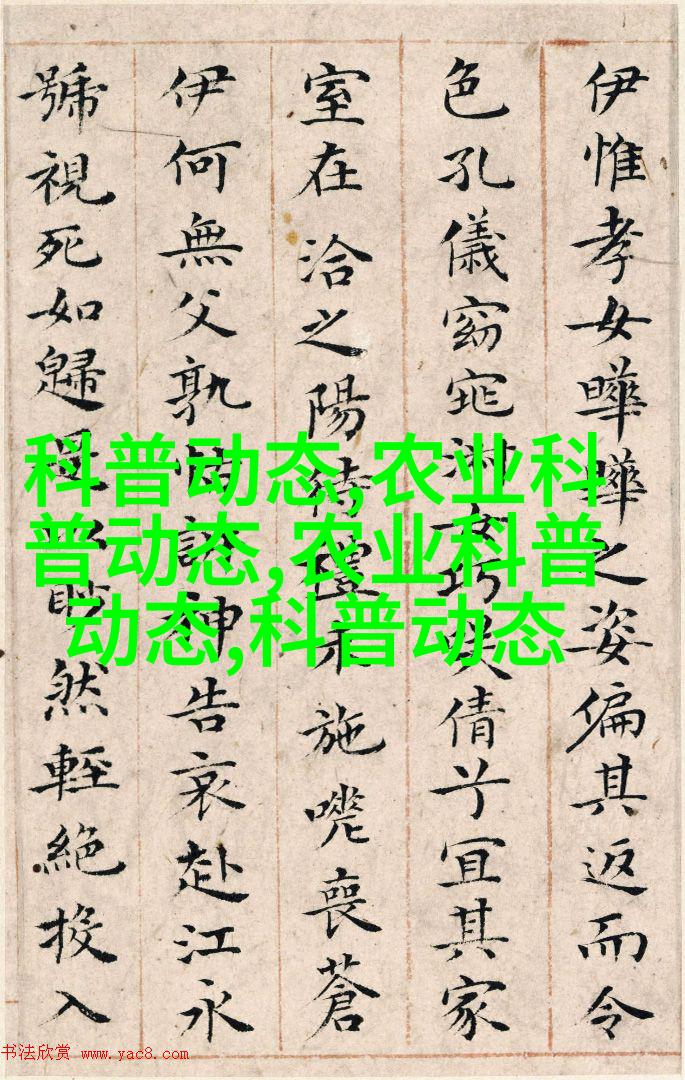 伊惟孝女曄曄之姿偏其返而令
色孔儀窈窕淑女巧咲倩兮宜其家
室在洽之陽待禮未施嗟喪蒼
伊何無父孰怙訴神告哀赴江永
號視死如歸是以眇然輕絕投入
科普动态,农业科
普动态,农业科普
动态,科普动态
书法欣赏 www.yac8.com